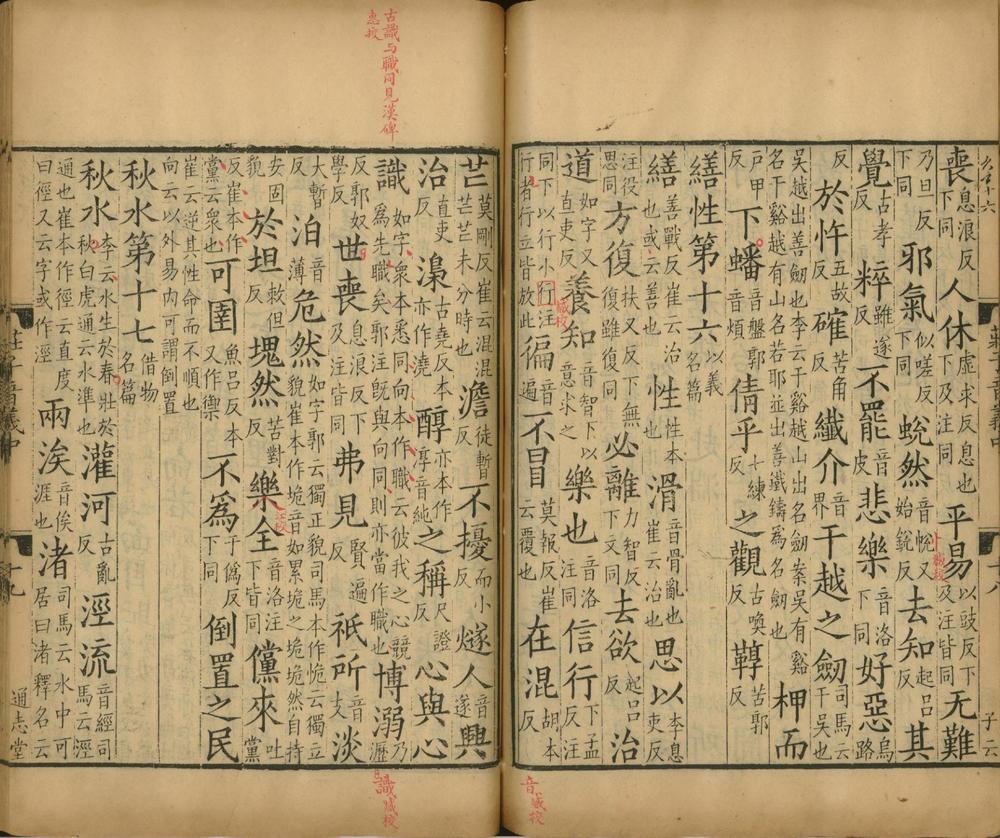 喪息浪反下同人休虛求反息也下及注同平易以豉反下及注皆同无難
乃旦反下同邪氣似嗟反下同蛻然音帨又始銳反去知起呂反其
覺古孝反粹雖遂反不罷音皮悲樂音洛下同好惡烏路
反於忤五故反確苦角反纖介音界干越之劒司馬云干吳也
吳越出善劒也李云干谿越山出名劒案吳有谿名干谿越有山名若耶並出善鐵鑄為名劒也柙而
戸甲反下蟠音盤郭音煩倩乎七練反之觀古喚反鞟苦郭反
繕性第十六以義名篇
繕善戰反崔云治也或云善也性性本也滑音骨亂也崔云治也思以李息吏反
注役思同方復扶又反下無復雖復同必離力智反下文同去欲起呂反治
道如字又直吏反養知音智下以意求之樂也音洛注同信行下孟反注
同下以行小行注行者行立皆放此徧音遍不冒莫報反崔云覆也在混胡本反
音臧校
子云
古識与職同見漢碑
惠校
芒莫剛反崔云混混芒芒未分時也澹徒暫反不擾而小反燧人音遂興
治直吏反古堯反本亦作澆醇本亦作淳音純之稱尺證反心與心
識如字衆本悉同向本作職云彼我之心競為先職矣郭注旣與向同則亦當作職也博溺乃瀝
反郭奴學反世喪息浪反下及注皆同弗見賢遍反祇所音支淡
大暫反泊音薄危然如字郭云獨正貌司馬本作恑云獨立貌崔本作垝音如累垝之垝垝然自持
安固貌於坦敕但反塊然苦對反樂全音洛注下皆同儻來吐黨
反崔本作黨云衆也可圉魚呂反本又作禦不為于偽反下同倒置之民
崔云逆其性命而不順也向云以外易内可謂倒置
秋水第十七借物名篇
秋水李云水生於春壯於秋白虎通云水準也灌河古亂反涇流音經司馬云涇
通也崔本作徑云直度曰徑又云字或作涇兩涘音俟涯也渚司馬云水中可居曰渚釋名云
識臧校
莊子音義中
十九
通志堂